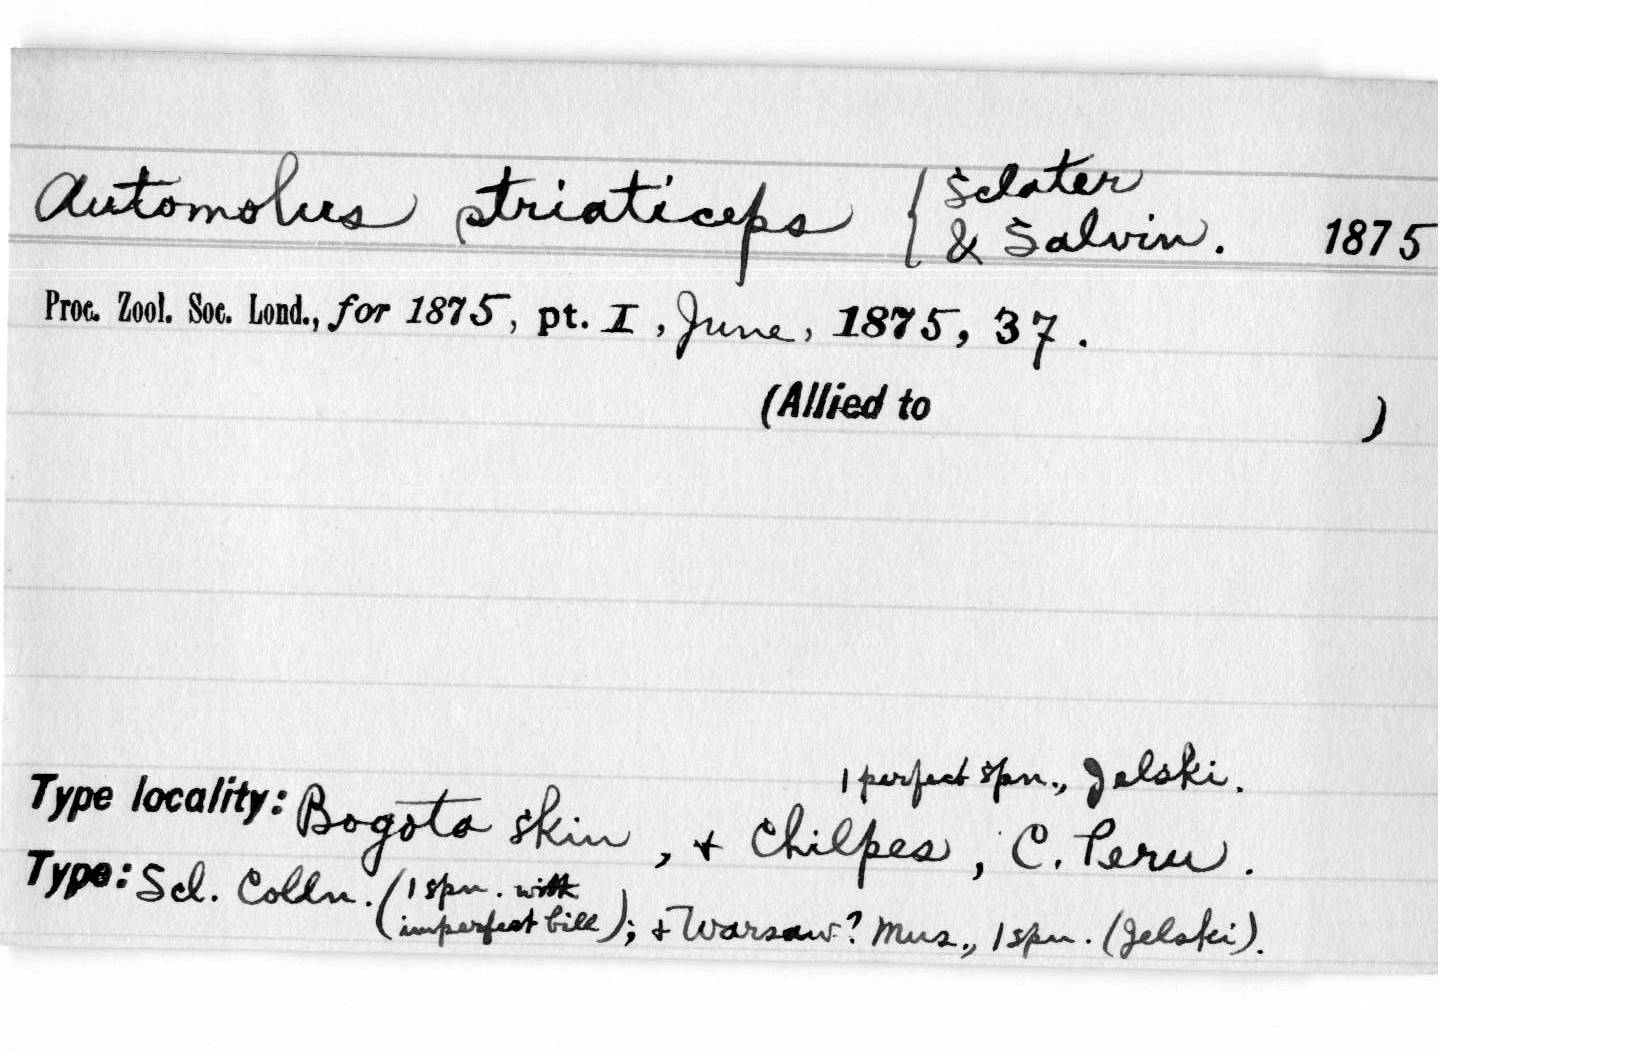 Automolus striaticeps { Sclater & Salvin. 1875
Proc. Zool. Soc. Lond., for 1875, pt. I, June, 1875, 37.
(Allied to )
1 perfect spn., Jelski.
Type locality: Bogota skin, & Chilpes, C. Peru.
Type: Scl. Colln. (1 spn. with
imperfect bill); & Warsaw? Mus., 1 spn. (Jelski).